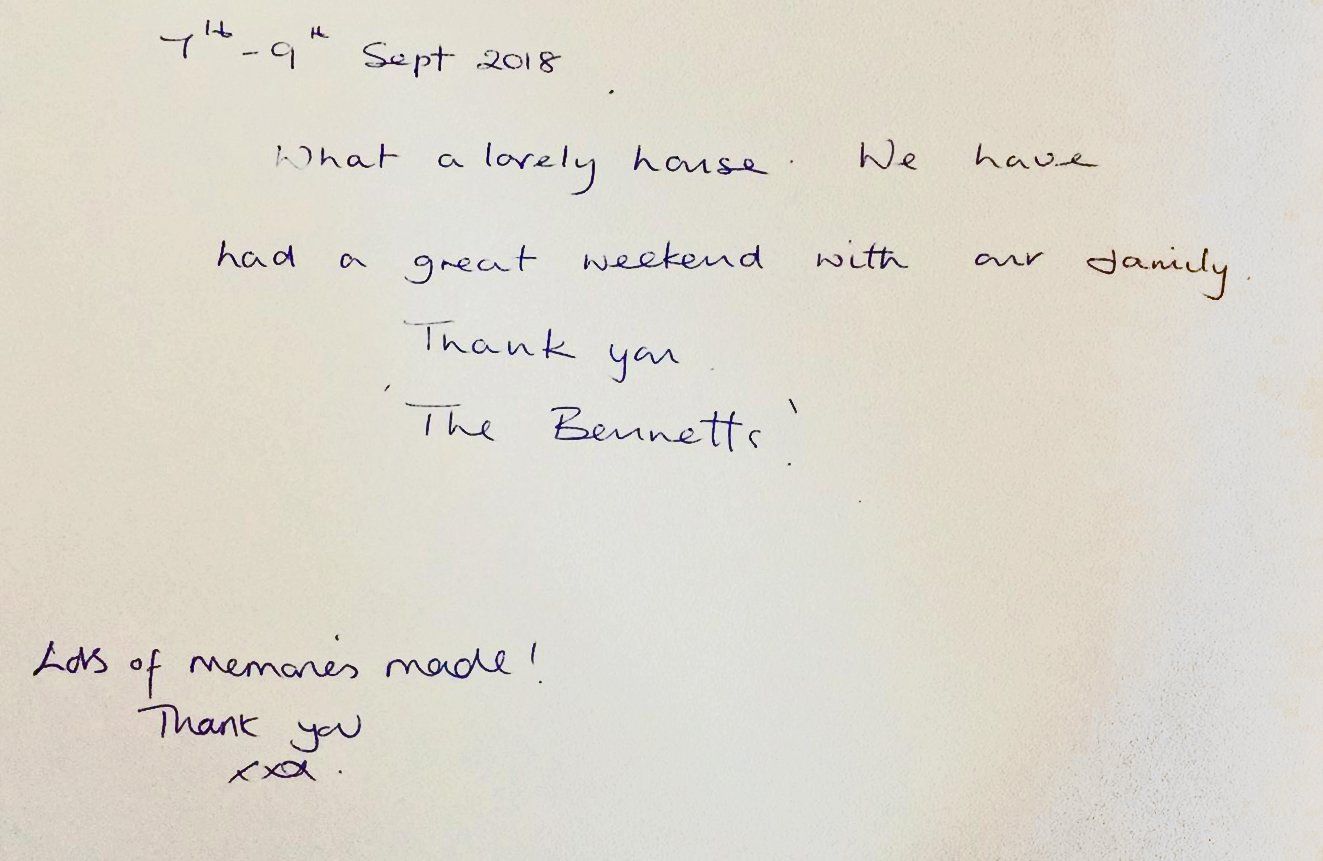 7th - 9th Sept 2018
What a lovely house. We have
had a great weekend with our family.
Thank you.
'The Bennetts'.
Lots of memories made!
Thank you
xxx.